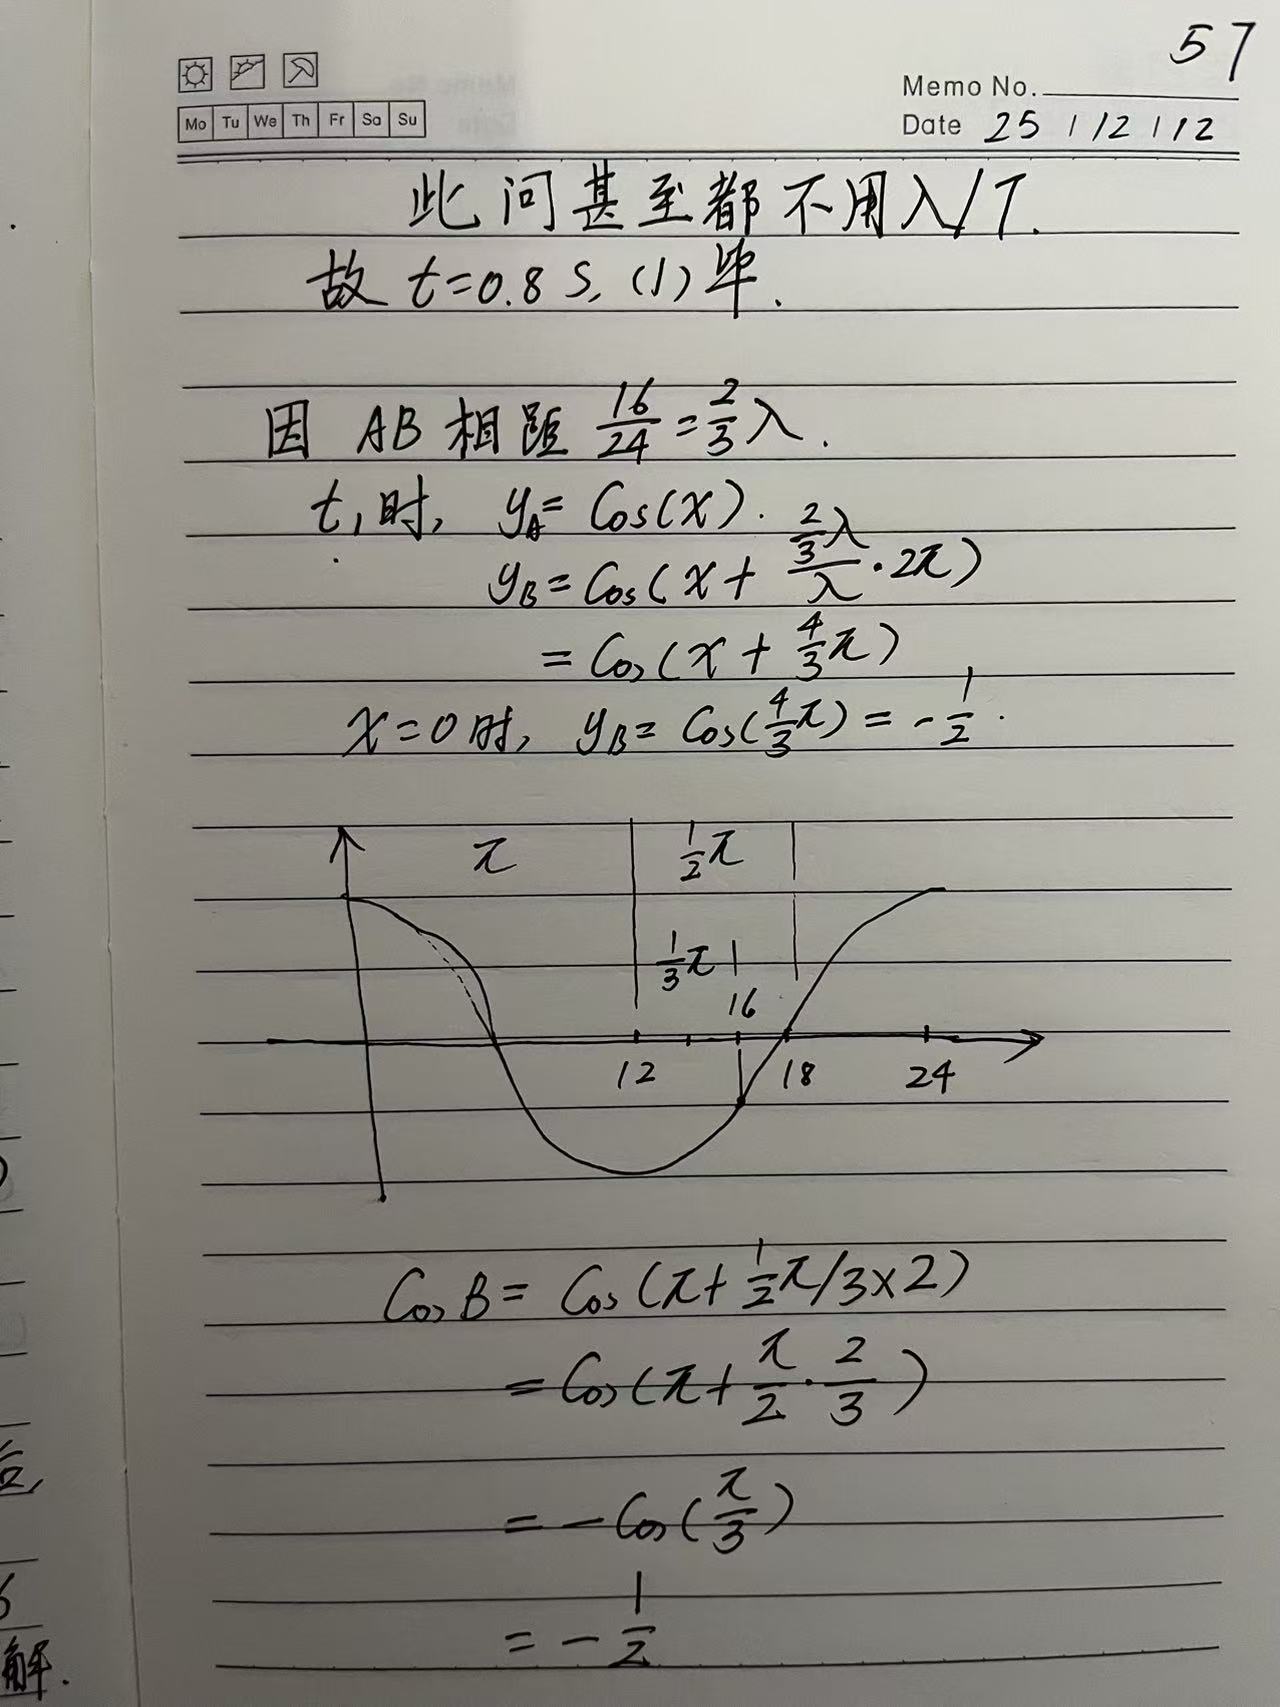 57
Memo No.
Mo Tu We Th Fr Sa Su
Date 25 / 12 / 12
此问甚至都不用λ/T.
故 t=0.8 s, (1) 毕.
因 AB 相距 16/24 = 2/3 λ.
t₁时, y_A = Cos(x).
y_B = Cos(x + (2/3 λ)/λ · 2π)
= Cos(x + 4/3 π)
x=0时, y_B = Cos(4/3 π) = -1/2.
π 1/2 π
1/3 π
16
12 18 24
Cos B = Cos(π + 1/2 π/3×2)
= Cos(π + π/2 · 2/3)
= -Cos(π/3)
= -1/2
解.